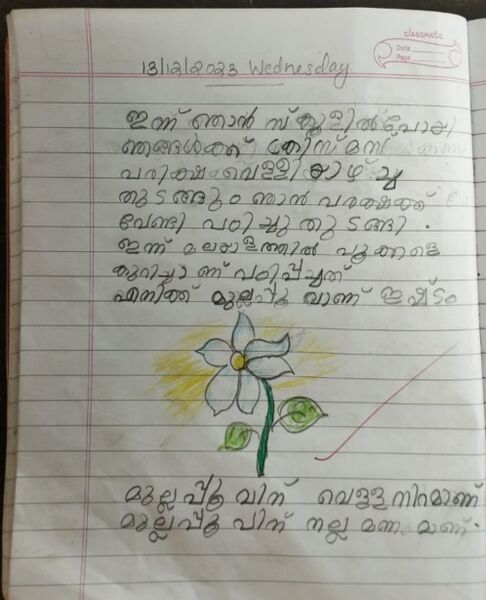 classmate
Date
Page
13/12/2023 Wednesday
ഇന്ന് ഞാൻ സ്കൂളിൽ പോയി
ഞങ്ങൾക്ക് ക്രിസ്മസ്
പരിക്ഷ വെള്ളിയാഴ്ച്ച
തുടങ്ങും ഞാൻ പരക്ഷക്ക്
വേണ്ടി പഠിച്ചു തുടങ്ങി.
ഇന്ന് മലയാളത്തിൽ പൂക്കളെ
കുറിച്ചാണ് പഠിപ്പിച്ചത്
എനിക്ക് മുല്ലപ്പൂ വാണ് ഇഷ്ടം
മുല്ലപ്പൂവിന് വെള്ളനിറമാണ്
മുല്ലപ്പൂവിന് നല്ല മണമാണ്.